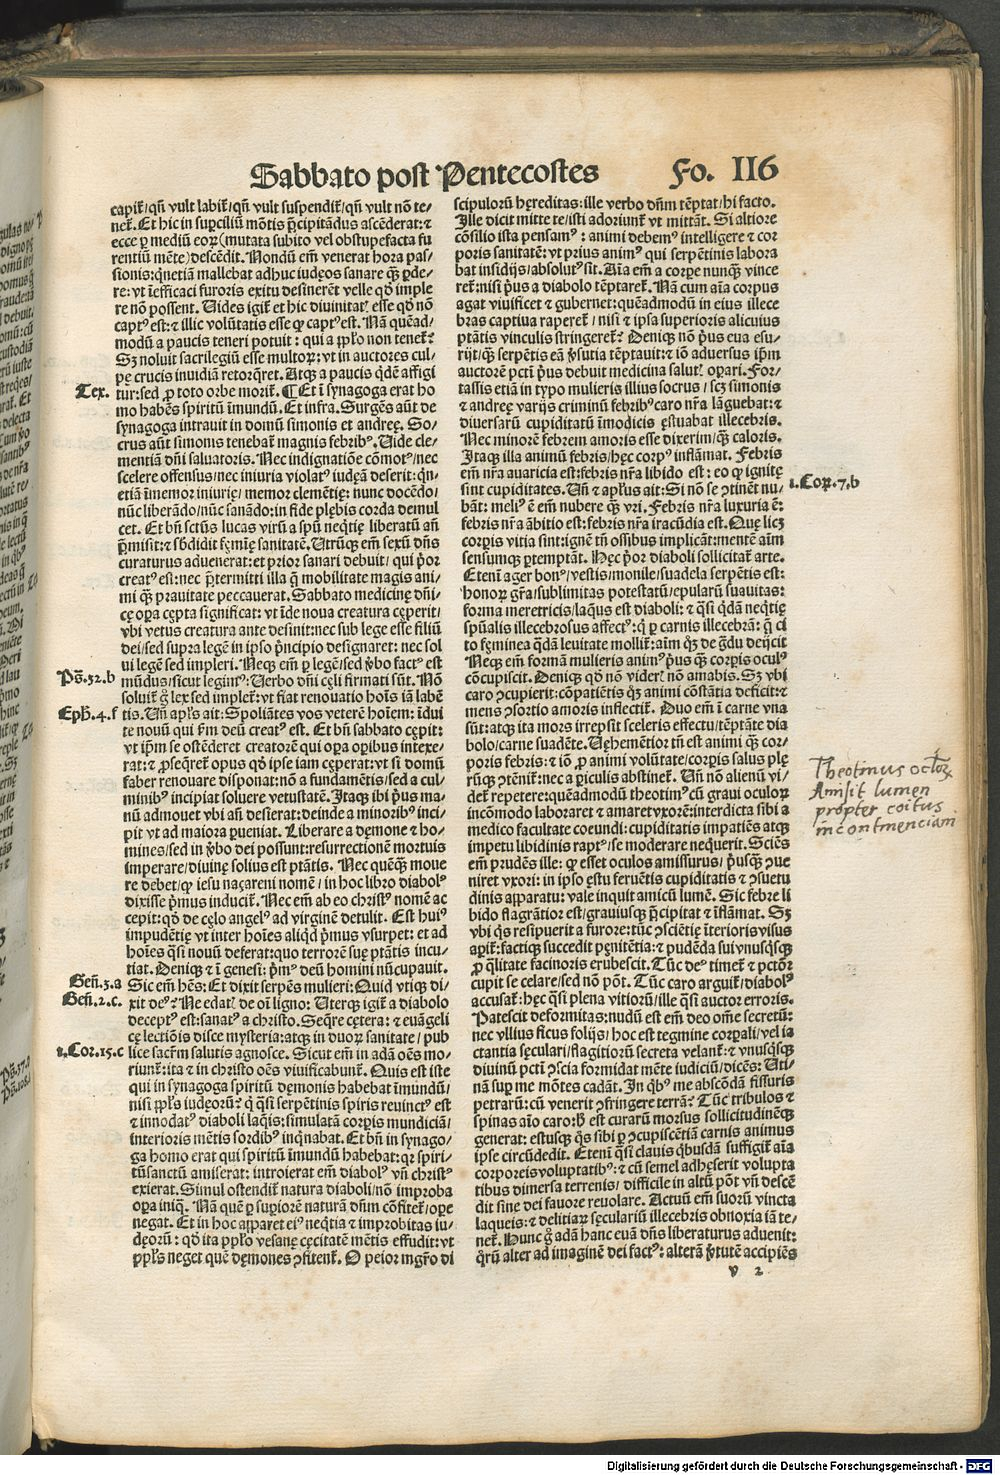 Sabbato post Pentecostes Fo. 116
capit᷑/qñ vult labit᷑/qñ vult suspendit᷑/qñ vult nõ te-
net᷑. Et hic in supciliũ mõtis p̃cipitãdus ascẽderat: ⁊
ecce ꝑ mediũ eoꝝ (mutata subito vel obstupefacta fu
rentiũ mẽte) descẽdit. Nondũ em̃ venerat hora pas-
sionis: quetiam mallebat adhuc iudęos sanare ꝗ̃ ꝑde-
re: vt inefficaci furoris exitu desinerẽt velle qđ imple
re nõ possent. Uides igit᷑ et hic diuinitat᷒ esse qđ nõ
captꝰ est: ⁊ illic volũtatis esse ꝙ captꝰ est. Nã quẽad-
modũ a paucis teneri potuit: qui a ppl̃o non tenet᷑?
Sꝫ noluit sacrilegiũ esse multoꝝ: vt in auctores cul-
pę crucis inuidiã retorq̃ret. Atqꝫ a paucis qđẽ affigi
Tex.
tur: sed ꝓ toto orbe morit᷑. ¶ Et ĩ synagoga erat ho
mo habẽs spiritũ ĩmundũ. Et infra. Surgẽs aũt de
synagoga intrauit in domũ simonis et andreę. So-
crus aũt simonis tenebat᷑ magnis febribꝰ. Uide cle-
mentiã dñi saluatoris. Nec indignatiõe cõmotꝰ/nec
scelere offensus/nec iniuria violatꝰ iudęã deserit: qñ-
etiã ĩmemor iniurię/memor clemẽtię: nunc docẽdo/
nũc liberãdo/nũc sanãdo: in fide plębis corda demul
cet. Et bñ sctũs lucas virũ a spũ neq̃tię liberatũ añ
p̃misit: ⁊ sb̃didit fęmię sanitatẽ. Utrũqꝫ em̃ sexũ dñs
curaturus aduenerat: et prior sanari debuit/qui p̃or
creatꝰ est: nec p̃termitti illa q̃ mobilitate magis ani-
mi ꝗ̃ prauitate peccauerat. Sabbato medicinę dñi-
cę oꝑa cępta significat: vt ĩde noua creatura cęperit/
vbi vetus creatura ante desinit: nec sub lege esse filiũ
dei/sed supra legẽ in ipso p̃ncipio designaret: nec sol
ui legẽ sed impleri. Neqꝫ em̃ ꝑ legẽ/sed v̾bo factꝰ est
Ps̃.32.b
mũdus/sicut legimꝰ: Uerbo dñi cęli firmati sũt. Nõ
soluit᷑ g̊ lex sed implet᷑: vt fiat renouatio hoĩs iã labẽ
Eph̃.4.f
tis. Uñ apl̃s ait: Spoliãtes vos veterẽ hoĩem: ĩdui
te nouũ qui ẜm deũ creatꝰ est. Et bñ sabbato cępit:
vt ip̃m se ostẽderet creatorẽ qui oꝑa oꝑibus intexe-
rat: ⁊ ꝓseq̃ret᷑ opus qđ ipse iam cęperat: vt si domũ
faber renouare disponat: nõ a fundamẽtis/sed a cul-
minibꝰ incipiat soluere vetustatẽ. Itaqꝫ ibi p̃us ma-
nũ admouet vbi añ desierat: deinde a minoribꝰ inci
pit vt ad maiora ꝑueniat. Liberare a dęmone ⁊ ho-
mines/sed in v̾bo dei possunt: resurrectionẽ mortuis
imperare/diuinę solius est ptãtis. Nec quẽꝗ̃ moue
re debet/ꝙ iesu naçareni nomẽ/in hoc libro diabolꝰ
dixisse p̃mus inducit᷑. Nec em̃ ab eo christꝰ nomẽ ac
cepit: qđ de cęlo angelꝰ ad virginẽ detulit. Est huiꝰ
impudẽtię vt inter hoĩes aliqđ p̃mus vsurpet: et ad
hoĩes q̃si nouũ deferat: quo terrorẽ suę ptãtis incu-
tiat. Deniqꝫ ⁊ ĩ genesi: p̃mꝰ deũ homini nũcupauit.
Geñ.3.a
Sic em̃ hẽs: Et dixit serpẽs mulieri: Quid vtiqꝫ di-
Geñ.2.c.
xit deꝰ? Ne edat᷒ de oĩ ligno: Uterqꝫ igit᷑ a diabolo
deceptꝰ est: sanatꝰ a christo. Seq̃re cętera: ⁊ euãgeli
cę lectiõis disce mysteria: atqꝫ in duoꝝ sanitate/pub
1.Cor.15.c
lice sacr̃m salutis agnosce. Sicut em̃ in adã oẽs mo-
riunt᷑: ita ⁊ in christo oẽs viuificabunt᷑. Quis est iste
qui in synagoga spiritũ dęmonis habebat ĩmundũ/
nisi ppl̃s iudęorũ? q̃ q̃si serpẽtinis spiris reuinctꝰ est
⁊ innodatꝰ diaboli laq̃is: simulatã corꝑis mundiciã/
interioris mẽtis sordibꝰ inq̃nabat. Et bñ in synago-
ga homo erat qui spiritũ ĩmundũ habebat: qꝛ spiri-
tũsanctũ amiserat: introierat em̃ diabolꝰ vñ christꝰ
exierat. Simul ostendit᷑ natura diaboli/nõ improba
oꝑa iniq̃. Nã quẽ ꝑ suꝑiorẽ naturã dñm cõfitet᷑/oꝑe
negat. Et in hoc apparet eiꝰ neq̃tia ⁊ improbitas iu-
dęorũ: qđ ita ppl̃o vesanę cęcitatẽ mẽtis effudit: vt
ppl̃s neget quẽ dęmones ꝯfitent᷑. O peior mgr̃o di
scipulorũ hęreditas: ille verbo dñm tẽptat/hi facto.
Ille dicit mitte te/isti adoriunt᷑ vt mittãt. Si altiore
cõsilio ista pensamꝰ: animi debemꝰ intelligere ⁊ cor
poris sanitatẽ: vt prius animꝰ qui serpẽtinis labora
bat insidijs/absolutꝰ sit. Aĩa em̃ a corꝑe nunꝗ̃ vince
ret᷑: nisi p̃us a diabolo tẽptaret᷑. Nã cum aĩa corpus
agat viuificet ⁊ gubernet: quẽadmodũ in eius illece
bras captiua raperet᷑/nisi ⁊ ipsa superioris alicuius
ptãtis vinculis stringeret᷑? Deniqꝫ nõ p̃us eua esu-
rijt/ꝗ̃ serpẽtis eã v̾sutia tẽptauit: ⁊ iõ aduersus ip̃m
auctorẽ pctĩ p̃us debuit medicina salut᷒ oꝑari. For-
tassis etiã in typo mulieris illius socrus/scꝫ simonis
⁊ andreę varijs criminũ febribꝰ caro nr̃a lãguebat: ⁊
diuersarũ cupiditatũ ĩmodicis ęstuabat illecebris.
Nec minorẽ febrem amoris esse dixerim/ꝗ̃ caloris.
Itaqꝫ illa animũ febris/hęc corpꝰ inflãmat. Febris
em̃ nr̃a auaricia est: febris nr̃a libido est: eo ꝙ ignitę
1.Coꝝ.7.b
sint cupiditates. Uñ ⁊ apl̃us ait: Si nõ se ꝯtinẽt nu-
bãt: meliꝰ ẽ em̃ nubere ꝗ̃ vri. Febris nr̃a luxuria ẽ:
febris nr̃a ãbitio est: febris nr̃a iracũdia est. Quę licꝫ
corꝑis vitia sint: ignẽ tñ ossibus implicãt: mentẽ aĩm
sensumqꝫ ꝑtemptãt. Hęc p̃or diaboli sollicitat᷑ arte.
Etenĩ ager bonꝰ/vestis/monile/suadela serpẽtis est:
honoꝝ gr̃a/sublimitas potestatũ/epularũ suauitas:
forma meretricis/laq̃us est diaboli: ⁊ q̃si q̃dã neq̃tię
spũalis illecebrosus affectꝰ: q̃ ꝑ carnis illecebrã: q̃ ci
to fęminea q̃dã leuitate mollit᷑: aĩm q̃ꝫ de g̃du deijcit
Neqꝫ em̃ formã mulieris animꝰ p̃us ꝗ̃ corꝑis oculꝰ
cõcupiscit. Deniqꝫ qđ nõ videt᷑ nõ amabis. Sꝫ vbi
caro ꝯcupierit: cõpatiẽtis q̃ꝫ animi cõstãtia deficit: ⁊
mens ꝯsortio amoris inflectit᷑. Duo em̃ ĩ carne vna
sũt: atqꝫ ita mors irrepsit sceleris effectu/tẽptãte dia
bolo/carne suadẽte. Uęhemẽtior tñ est animi ꝗ̃ cor-
poris febris: ⁊ iõ ꝓ animi volũtate/corꝑis salus plę
rũqꝫ ꝯtẽnit᷑: nec a ꝑiculis abstinet᷑. Uñ nõ alienũ vi/
det᷑ repetere: quẽadmodũ theotimꝰ cũ graui oculoꝝ
incõmodo laboraret ⁊ amaret vxorẽ: interdicta sibi a
medico facultate coeundi: cupiditatis impatiẽs atqꝫ
impetu libidinis raptꝰ/se moderare nequerit. Sciẽs
em̃ prudẽs ille: ꝙ esset oculos amissurus/p̃usꝗ̃ ꝯue
niret vxori: in ipso ęstu feruẽtis cupiditatis ⁊ ꝯsuetu
dinis apparatu: vale inquit amicũ lumẽ. Sic febre li
bido flagrãtior est/grauiusqꝫ p̃cipitat ⁊ ĩflãmat. Sꝫ
vbi q̃s resipuerit a furore: tũc ꝯsciẽtię ĩterioris visus
aꝑit᷑: factiqꝫ succedit pęnitẽtia: ⁊ pudẽda sui vnusq̃sqꝫ
ꝓ q̃litate facinoris erubescit. Tũc deꝰ timet᷑ ⁊ pctõr
cupit se celare/sed nõ põt. Tũc caro arguit᷑/diabolꝰ
accusat᷑: hęc q̃si plena vitiorũ/ille q̃si auctor erroris.
Patescit deformitas: nudũ est em̃ deo om̃e secretũ:
nec vllius ficus folijs/hoc est tegmine corꝑali/vel ia
ctantia sęculari/flagitiorũ secreta velant᷑: ⁊ vnusq̃sqꝫ
diuinũ pctĩ ꝯscia formidat mẽte iudiciũ/dicẽs: Uti-
nã suꝑ me mõtes cadãt. In q̃bꝰ me abscõdã fissuris
petrarũ: cũ venerit ꝯfringere terrã? Tũc tribulos ⁊
spinas aĩo caro: hꝰ est curarũ morsus sollicitudinẽqꝫ
generat: estusqꝫ q̃s sibi ꝑ ꝯcupiscẽtiã carnis animus
ipse circũdedit. Etenĩ q̃si clauis q̃busdã suffigit᷑ aĩa
corporeis voluptatibꝰ: ⁊ cũ semel adhęserit volupta
tibus dimersa terrenis/difficile in altũ põt vñ descẽ
dit sine dei fauore reuolare. Actuũ em̃ suorũ vincta
laqueis: ⁊ delitiaꝝ sęculariũ illecebris obnoxia iã te/
net᷑. Hunc g̊ adã hanc euã dñs liberaturus aduenit:
q̃rũ alter ad imaginẽ dei factꝰ: alterã v̾tutẽ accipiẽs
v 2
Theotimus octoꝝ
Amisit lumen
propter coitus
incontinenciam
Digitalisierung gefördert durch die Deutsche Forschungsgemeinschaft - DFG